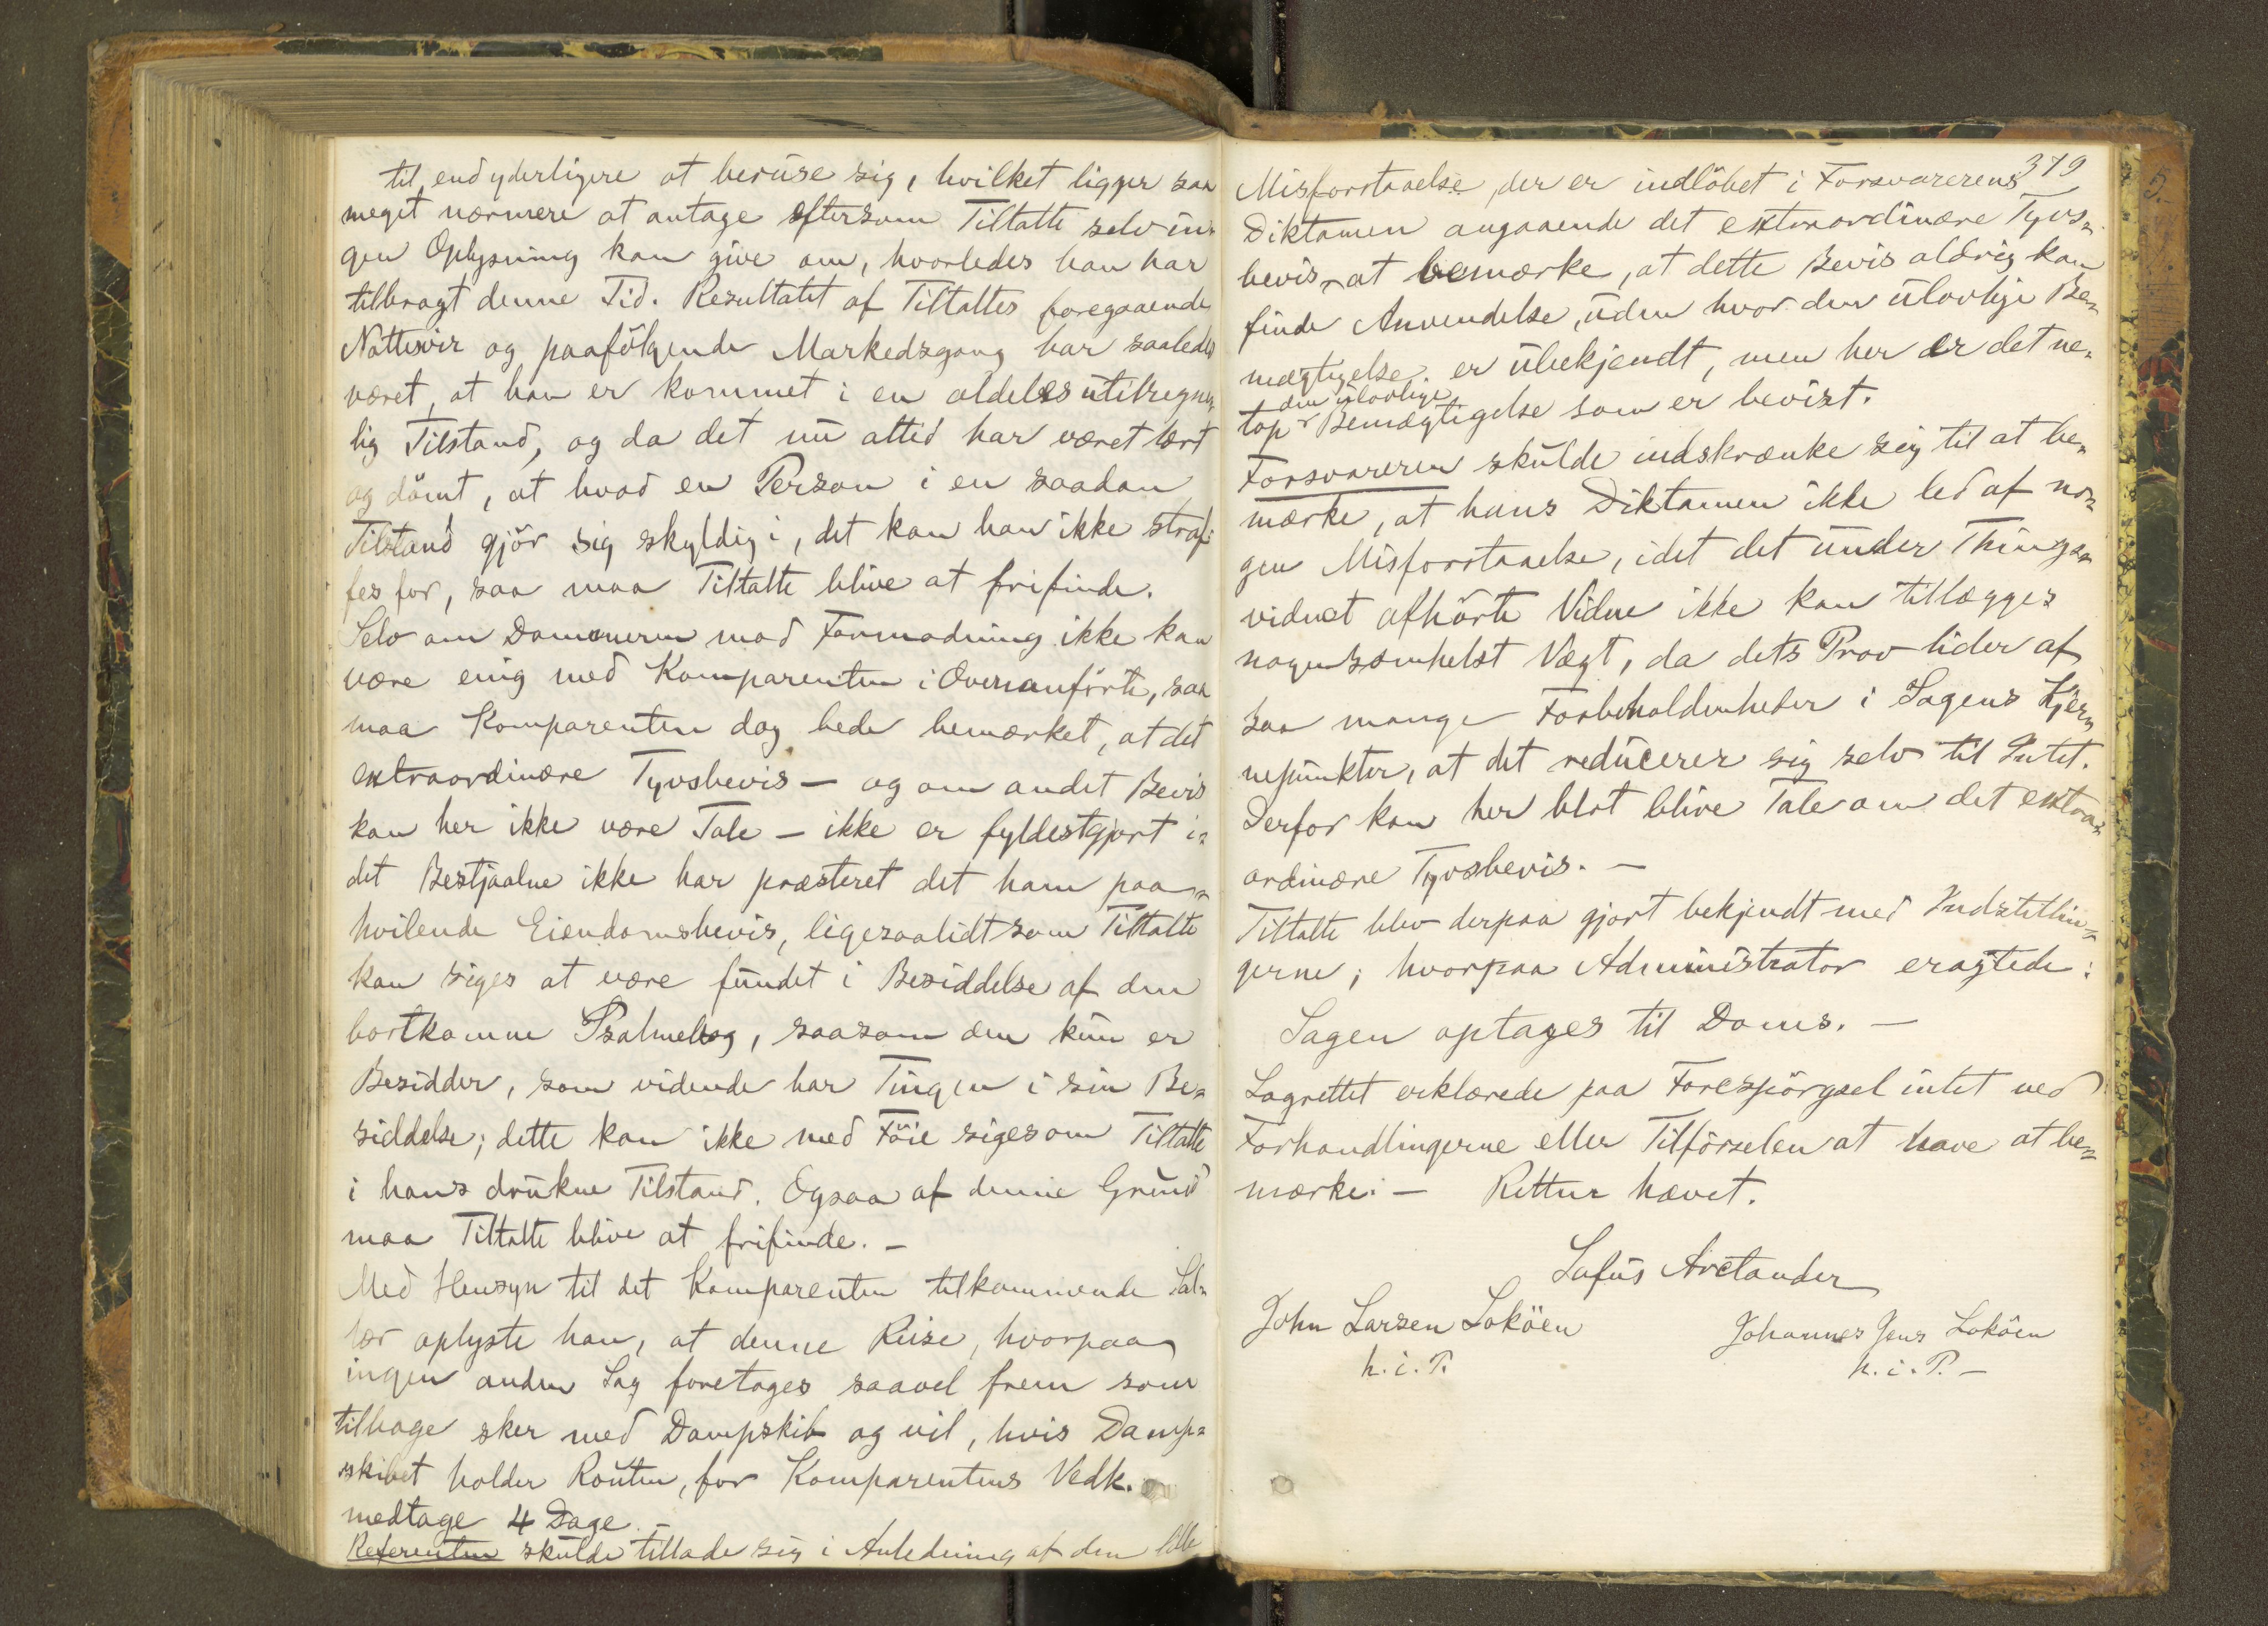 til end yderligere at beruse sig, hvilket ligger saa
meget nærmere at antage eftersom Tiltalte selv in-
gen Oplysning kan give om, hvorledes han har
tilbragt denne Tid. Resultatet af Tiltaltes foregaaende
Nattesvir og paafölgende Markedsgang har saaledes
været, at han er kommet i en aldeles utilregne-
lig Tilstand, og da det nu altid har været lært
og dömt, at hvad en Person i en saadan
Tilstand gjör sig skyldig i, det kan han ikke straf-
fes for, saa maa Tiltalte blive at frifinde.
Selv om Domeneren mod Formodning ikke kan
være enig med Komparenten i Ovenanförte, saa
maa Komparenten dog bede bemærket, at det
extraordinære Tyvsbevis — og om andet Bevis
kan her ikke være Tale — ikke er fyldestgjort i-
det Bestjaalne ikke har præsteret det ham paa-
hvilende Eiendomsbevis, ligesaalidt som Tiltalte
kan siges at være fundet i Besiddelse af den
bortkomne Psalmebog, saasom den kun er
Besidder, som vidende har Tingen i sin Be-
siddelse; dette kan ikke med Föie siges om Tiltalte
i hans drukne Tilstand. Ogsaa af denne Grund
maa Tiltalte blive at frifinde. —
Med Hensyn til det Komparenten tilkommende Sal-
lær oplyste han, at denne Reise, hvorpaa
ingen anden Sag foretages saavel frem som
tilbage sker med Dampskib og vil, hvis Damp-
skibet holder Routen, for Komparentens Vedk.
medtage 4 Dage. —
Referenten skulde tillade sig i Anledning af den lille
379
Misforstaaelse, der er indlöbet i Forsvarerens
Diktamen angaaende det extraordinære Tyvs-
bevis, at bemærke, at dette Bevis aldrig kan
finde Anvendelse, uden hvor den ulovlige Be-
mægtigelse er ubekjendt, men her er det ne-
den ulovlige
top Bemægtigelse som er bevist.
Forsvareren skulde indskrænke sig til at be-
mærke, at hans Diktamen ikke led af no-
gen Misforstaaelse, idet det under Things-
vidnet afhörte Vidne ikke kan tillægges
nogensomhelst Vægt, da dets Prov lider af
saa mange Forbeholdenheder i Sagens Kjær-
nepunkter, at det reducerer sig selv til Intet.
Derfor kan her blot blive Tale om det extra-
ordinære Tyvsbevis. —
Tiltalte blev derpaa gjort bekjendt med Indstillin-
gerne; hvorpaa Administrator eragtede:
Sagen optages til Doms. —
Lagrettet erklærede paa Forespörgsel intet ved
Forhandlingerne eller Tilförselen at have at be-
mærke. — Retten hævet.
Sofus Arctander
John Larsen Loköen Johannes Jens Loköen
h. i. P. h. i. P. —